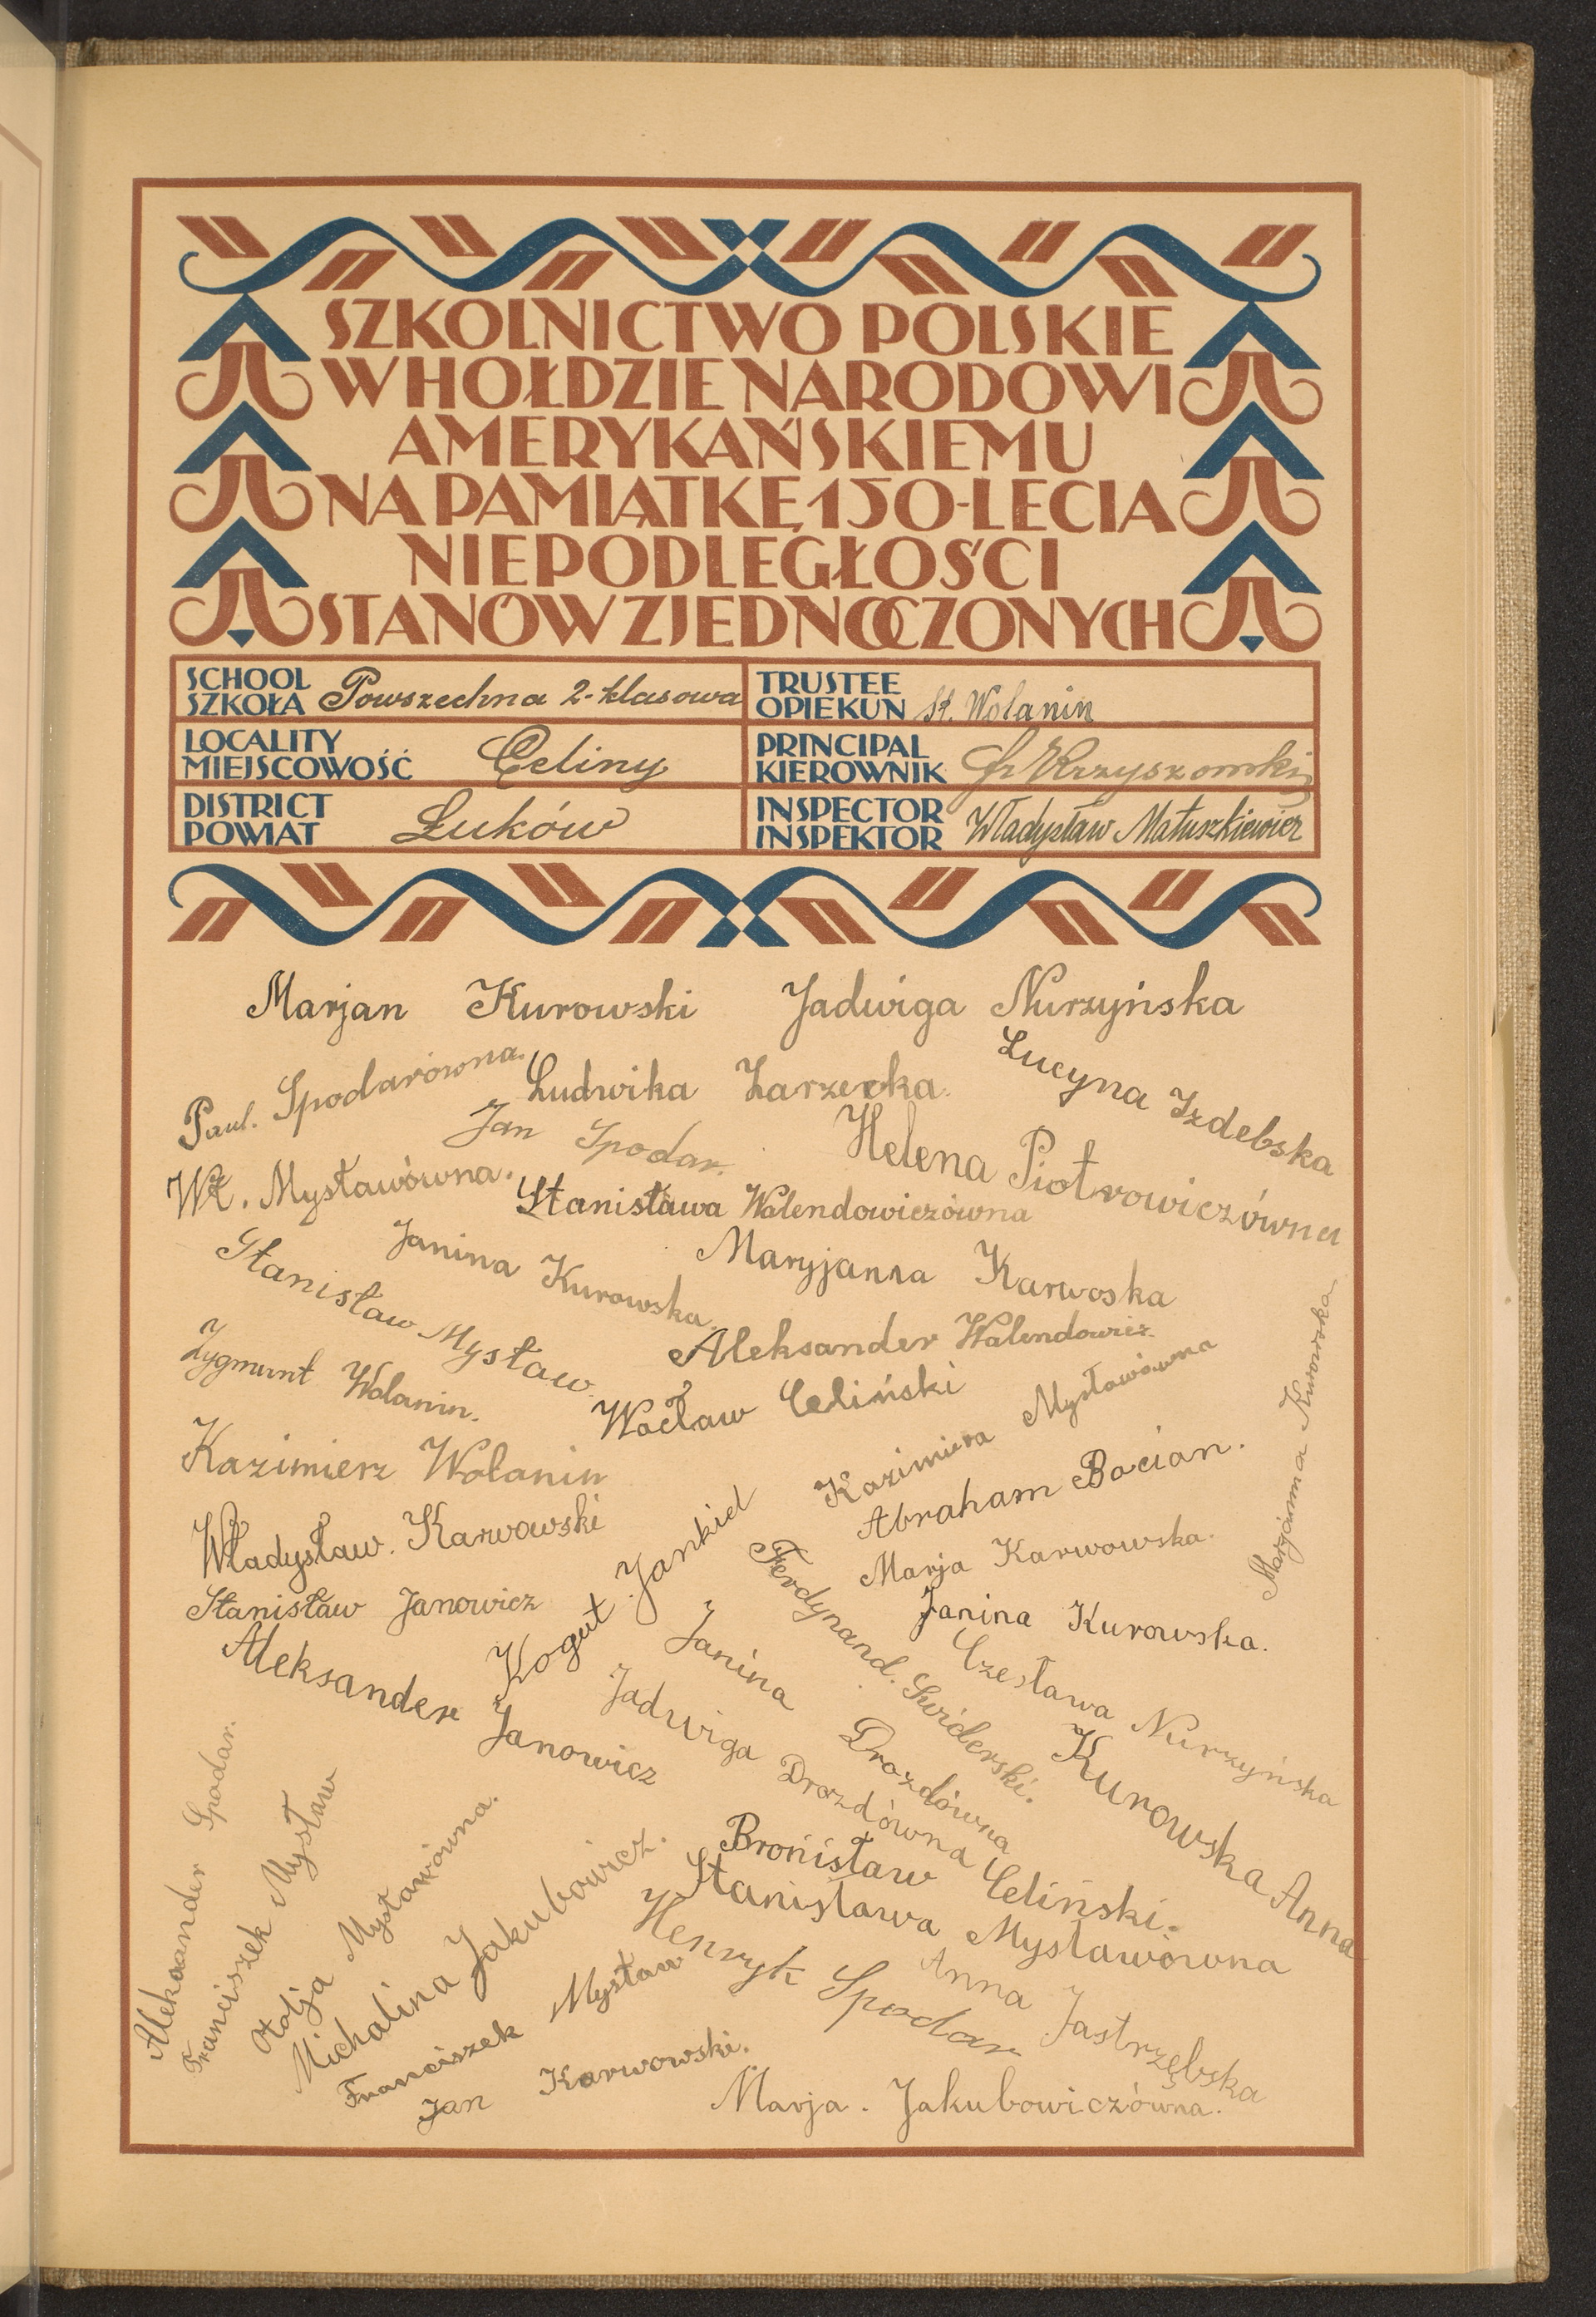 SZKOLNICTWO POLSKIE
W HOŁDZIE NARODOWI
AMERYKAŃSKIEMU
NA PAMIĄTKĘ 150-LECIA
NIEPODLEGŁOŚCI
STANÓW ZJEDNOCZONYCH
SCHOOL
SZKOŁA Powszechna 2-klasowa
TRUSTEE
OPIEKUN St. Wolanin
LOCALITY
MIEJSCOWOŚĆ Celiny
PRINCIPAL
KIEROWNIK Krzyszowski
DISTRICT
POWIAT Łuków
INSPECTOR
INSPEKTOR Władysław Matuszkiewicz
Marjan Kurowski
Jadwiga Nurzyńska
Paul. Spodarówna.
Ludwika Zarzecka.
Lucyna Izdebska
Jan Spodar.
Helena Piotrowiczówna
Wł. Mysławówna.
Stanisława Walendowiczówna
Janina Kurowska.
Maryjanna Karwoska
Stanisław Mysław.
Aleksander Walendowicz
Zygmunt Wolanin.
Wacław Celiński
Kazimiera Mysławówna
Marjanna Kurowska
Kazimierz Wolanin
Abraham Bocian.
Władysław. Karwowski
Kogut Jankiel
Marja Karwowska.
Stanisław Janowicz
Ferdynand. Swiderski.
Janina Kurowska.
Aleksander Janowicz
Janina Drozdówna
Czesława Nurzyńska
Jadwiga Drozdówna
Kurowska Anna
Aleksander Spodar.
Franciszek Mysław
Otolja Mysławówna.
Michalina Jakubowicz.
Bronisław Celiński.
Stanisława Mysławówna
Henryk Spodar
Franciszek Mysław
Anna Jastrzębska
Jan Karwowski.
Marja. Jakubowiczówna.